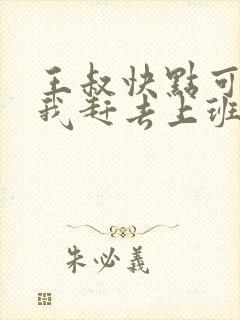 王叔快點可
我赶去上班
朱必義